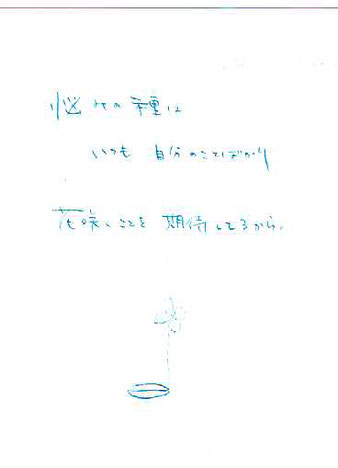 悩みの種は
いつも 自分のことばかり
花咲くことを 期待してるから、